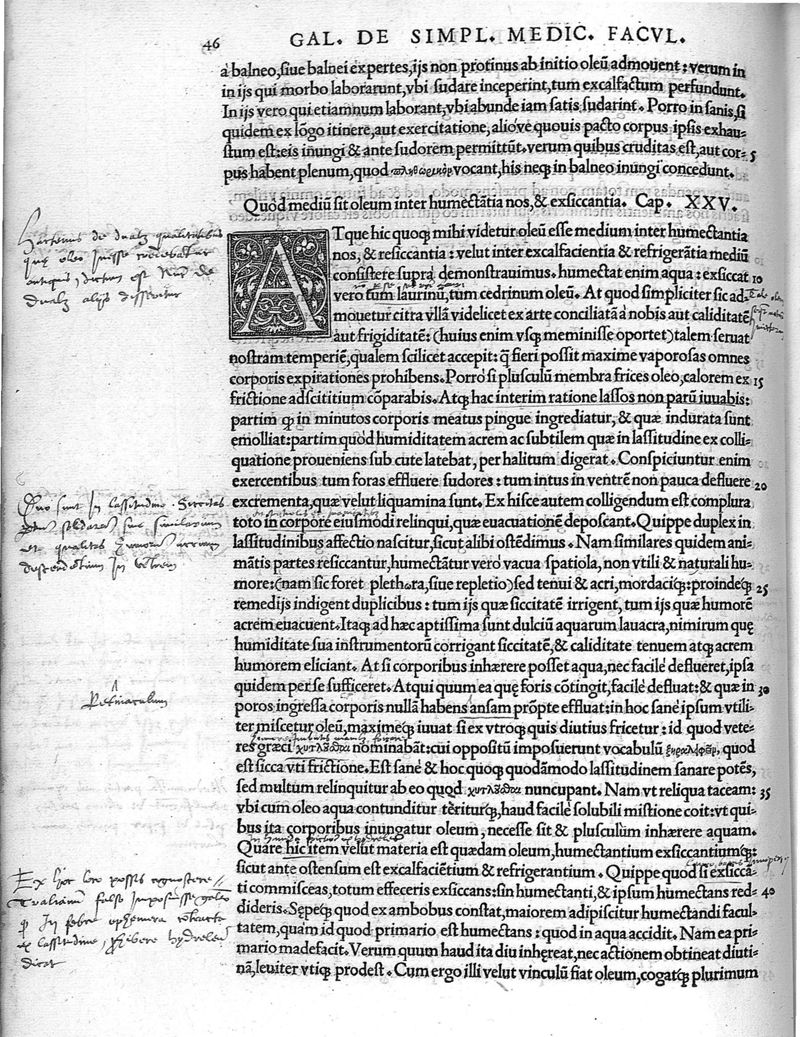 46
GAL. DE SIMPL. MEDIC. FACVL.
à balneo, siue balnei expertes, ijs non protinus ab initio oleũ admouent: verum in
in ijs qui morbo laborarunt, vbi sudare inceperint, tum excalfactum perfundunt.
In ijs vero qui etiamnum laborant, vbi abunde iam satis sudarint. Porro in sanis, si
quidem ex lõgo itinere, aut exercitatione, alióve quouis pacto corpus ipsis exhau-
stum est: eis inungi & ante sudorem permittũt. verum quibus cruditas est, aut cor- 5
pus habent plenum, quod πληθωρικὸν vocant, his neq; in balneo inungi concedunt.
Quòd mediũ sit oleum inter humectãtia nos, & exsiccantia. Cap. XXV.
ATque hic quoq; mihi videtur oleũ esse medium inter humectantia
nos, & resiccantia: velut inter excalfacientia & refrigerãtia mediũ
consistere supra demonstrauimus. humectat enim aqua: exsiccat 10
vero tum laurinũ, tum cedrinum oleũ. At quod simpliciter sic ad
mouetur citra vllã videlicet ex arte conciliatã à nobis aut caliditatẽ
aut frigiditatẽ: (huius enim vsq; meminisse oportet) talem seruat
nostram temperiẽ, qualem scilicet accepit: q̃ fieri possit maxime vaporosas omnes
corporis expirationes prohibens. Porrò si plusculũ membra frices oleo, calorem ex 15
frictione adscititium cõparabis. Atq; hac interim ratione lassos non parũ iuuabis:
partim q̃ in minutos corporis meatus pingue ingrediatur, & quæ indurata sunt
emolliat: partim quòd humiditatem acrem ac subtilem quæ in lassitudine ex colli-
quatione proueniens sub cute latebat, per halitum digerat. Conspiciuntur enim
exercentibus tum foras effluere sudores: tum intus in ventrẽ non pauca defluere 20
excrementa, quæ velut liquamina sunt. Ex hisce autem colligendum est complura
toto in corpore eiusmodi relinqui, quæ euacuationẽ deposcant. Quippe duplex in
lassitudinibus affectio nascitur, sicut alibi ostẽdimus. Nam similares quidem ani-
mãtis partes resiccantur, humectãtur verò vacua spatiola, non vtili & naturali hu-
more: (nam sic foret plethora, siue repletio) sed tenui & acri, mordaciq;: proindeq; 25
remedijs indigent duplicibus: tum ijs quæ siccitatẽ irrigent, tum ijs quæ humorẽ
acrem euacuent. Itaq; ad hæc aptissima sunt dulciũ aquarum lauacra, nimirum quę
humiditate sua instrumentorũ corrigant siccitatẽ, & caliditate tenuem atq; acrem
humorem eliciant. At si corporibus inhærere posset aqua, nec facilè deflueret, ipsa
quidem per se sufficeret. Atqui quum ea quę foris cõtingit, facilè defluat: & quæ in 30
poros ingressa corporis nullã habens ansam prõpte effluat: in hoc sanè ipsum vtili-
ter miscetur oleũ, maximeq; iuuat si ex vtroq; quis diutius fricetur: id quod vete-
res græci χυτλοῦσθαι nominabãt: cui oppositũ imposuerunt vocabulũ ξηραλοιφεῖν, quod
est sicca vti frictione. Est sanè & hoc quoq; quodãmodo lassitudinem sanare potẽs,
sed multum relinquitur ab eo quod χυτλοῦσθαι nuncupant. Nam vt reliqua taceam: 35
vbi cum oleo aqua contunditur tèriturq;, haud facilè solubili mistione coit: vt qui-
bus ita corporibus inungatur oleum, necesse sit & plusculùm inhærere aquam.
Quare hic item velut materia est quædam oleum, humectantium exsiccantiumq;:
sicut ante ostensum est excalfaciẽtium & refrigerantium. Quippe quod si exsiccã-
ti commisceas, totum effeceris exsiccans: sin humectanti, & ipsum humectans red- 40
dideris. Sępeq; quod ex ambobus constat, maiorem adipiscitur humectandi facul-
tatem, quàm id quod primario est humectans: quod in aqua accidit. Nam ea pri-
mario madefacit. Verum quum haud ita diu inhęreat, nec actionem obtineat diuti-
nã, leuiter vtiq; prodest. Cum ergo illi velut vinculũ fiat oleum, cogatq; plurimum
Retinaculum